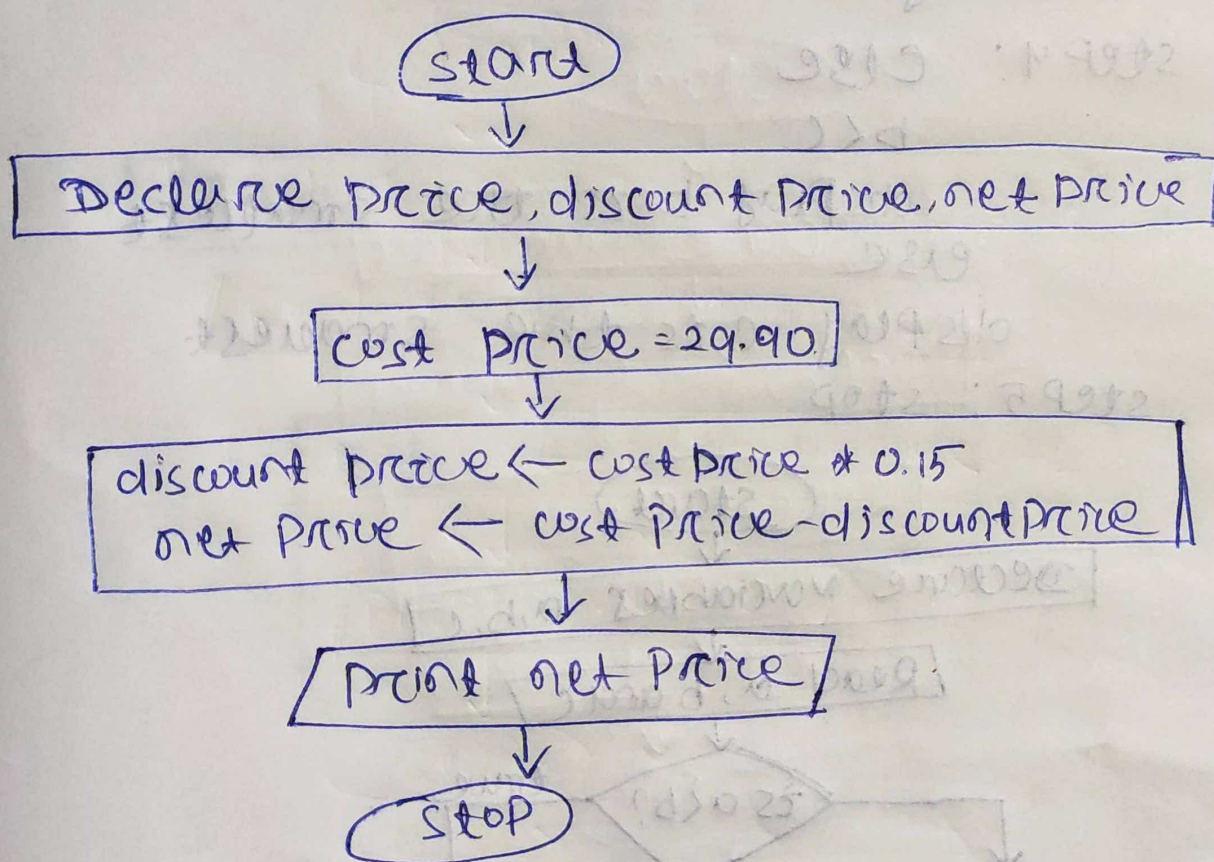 start
Declare price, discount price, net price
cost price = 29.90
discount price ← cost price * 0.15
net price ← cost price - discount price
print net price
stop